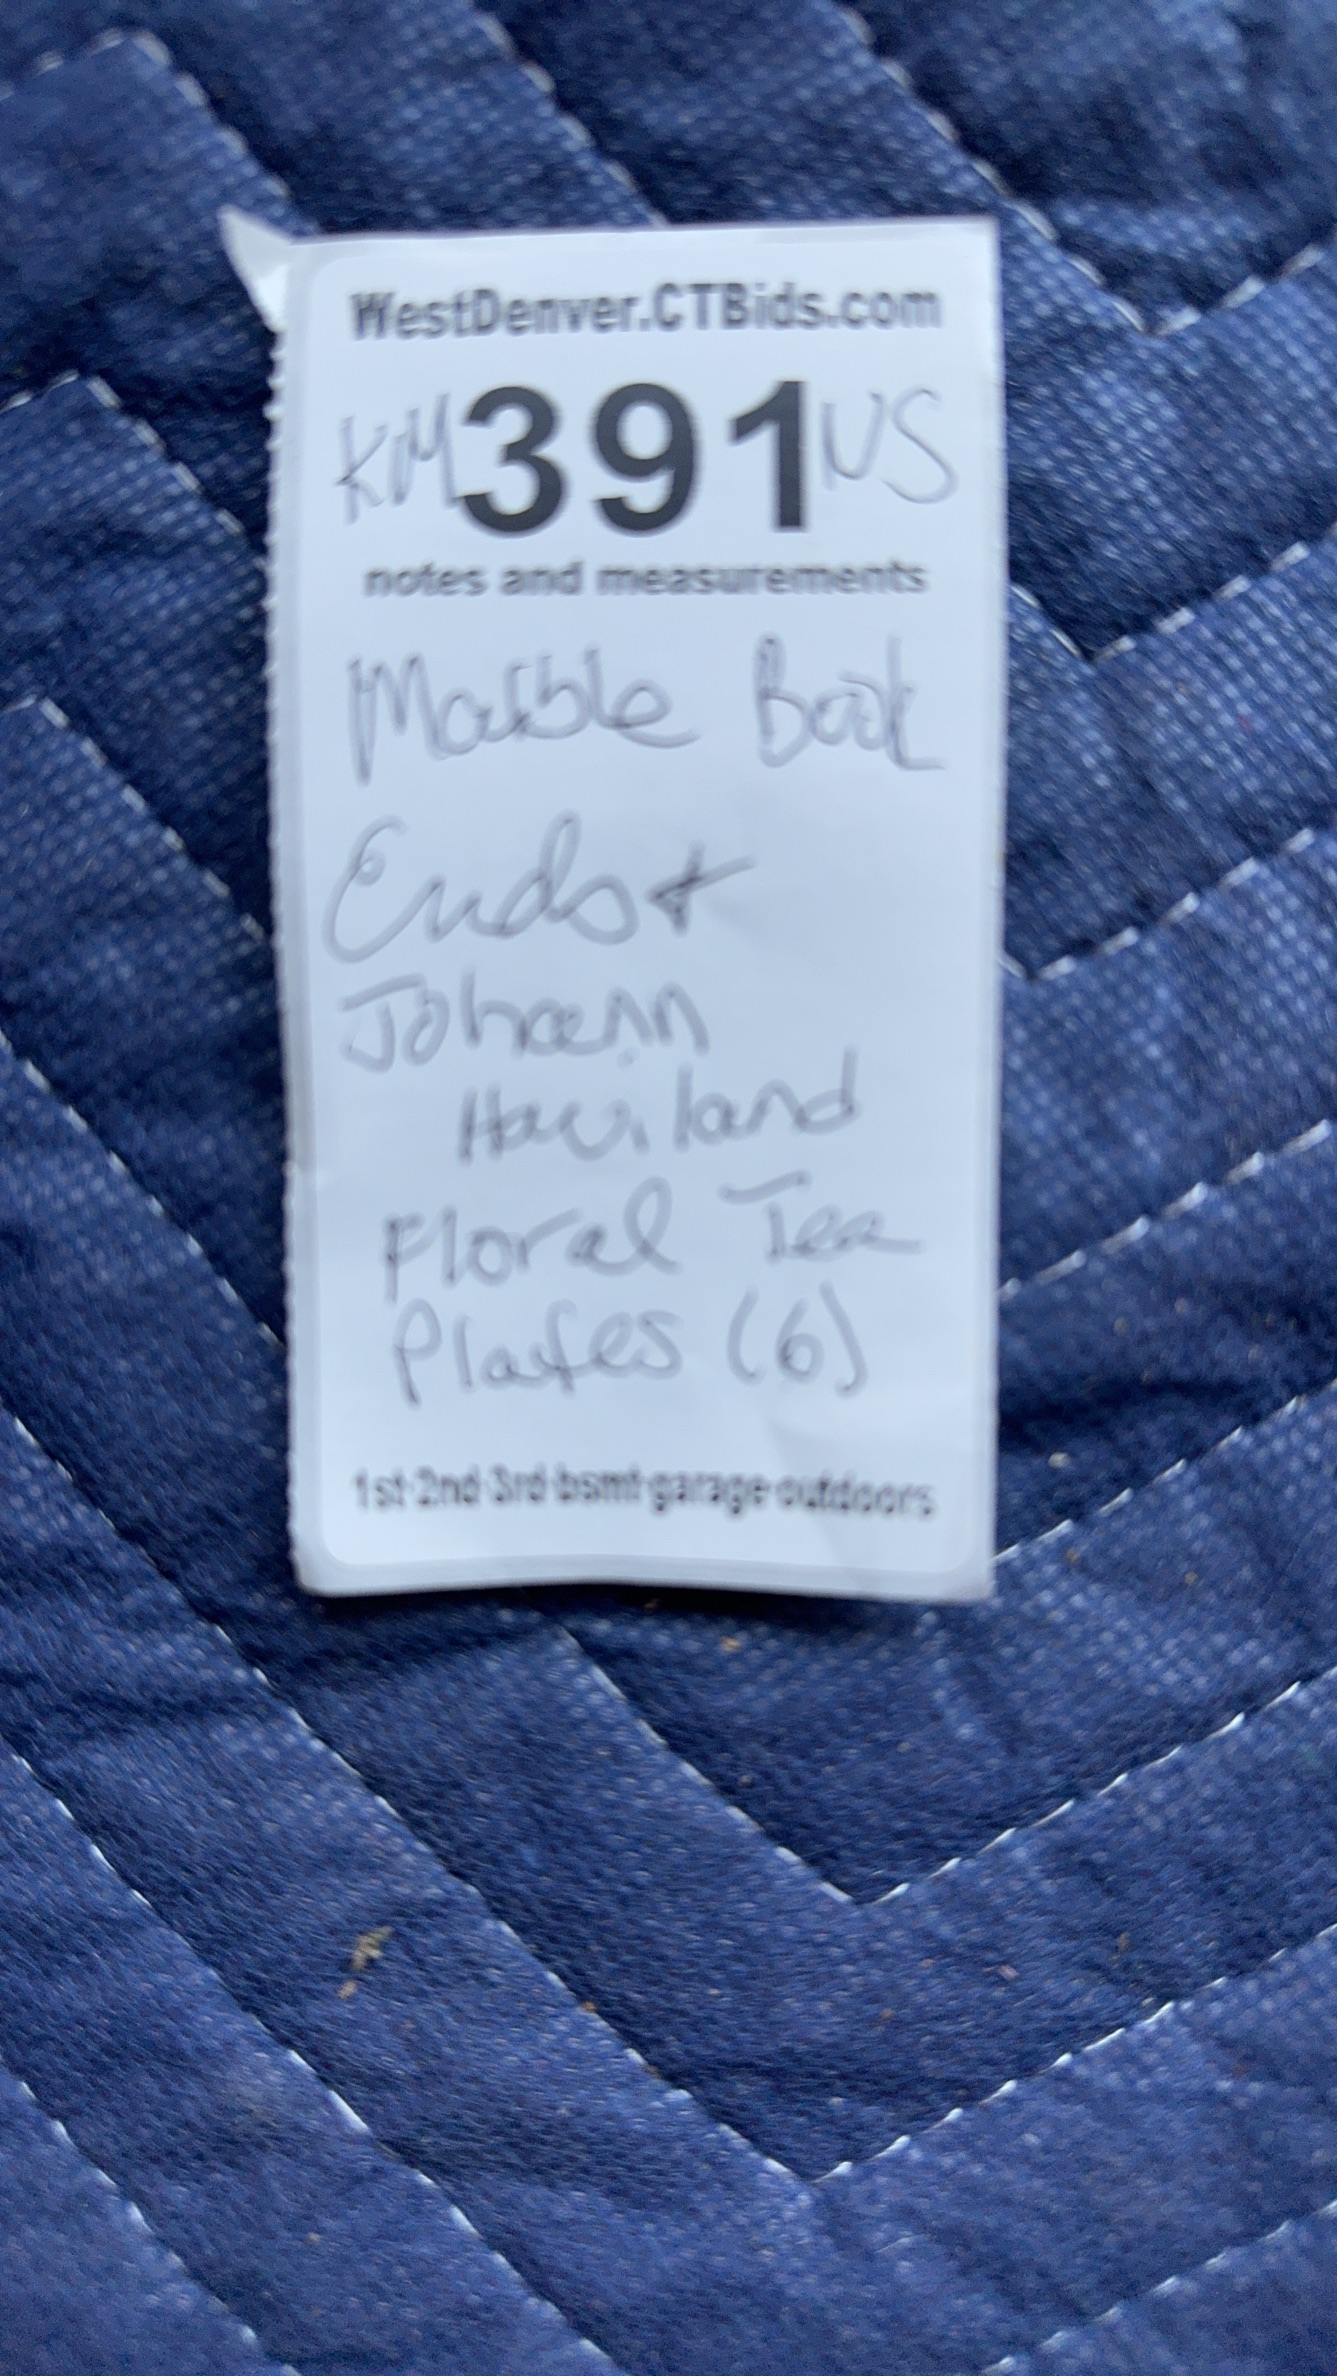 WestDenver.CTBids.com
KM 391 NS
notes and measurements
Marble Book
Ends +
Johann
Haviland
Floral Tea
Plates (6)
1st-2nd-3rd-bsmt-garage-outdoors